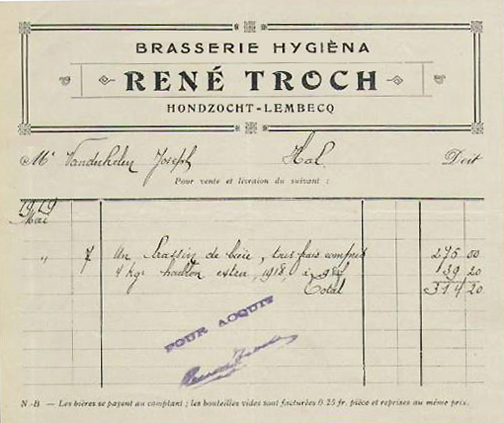 BRASSERIE HYGIÈNA
RENÉ TROCH
HONDZOCHT-LEMBECQ
Mr Vanderhelen Joseph Hal Doit
Pour vente et livraison du suivant :
1919
Mai
" 7 Un brassin de bière, tous frais compris 275 00
4 kgs houblon extra, 1918, à 39 20
Total 314 20
POUR ACQUIT
N.-B — Les bières se payent au comptant ; les bouteilles vides sont facturées 0.25 fr. pièce et reprises au même prix.